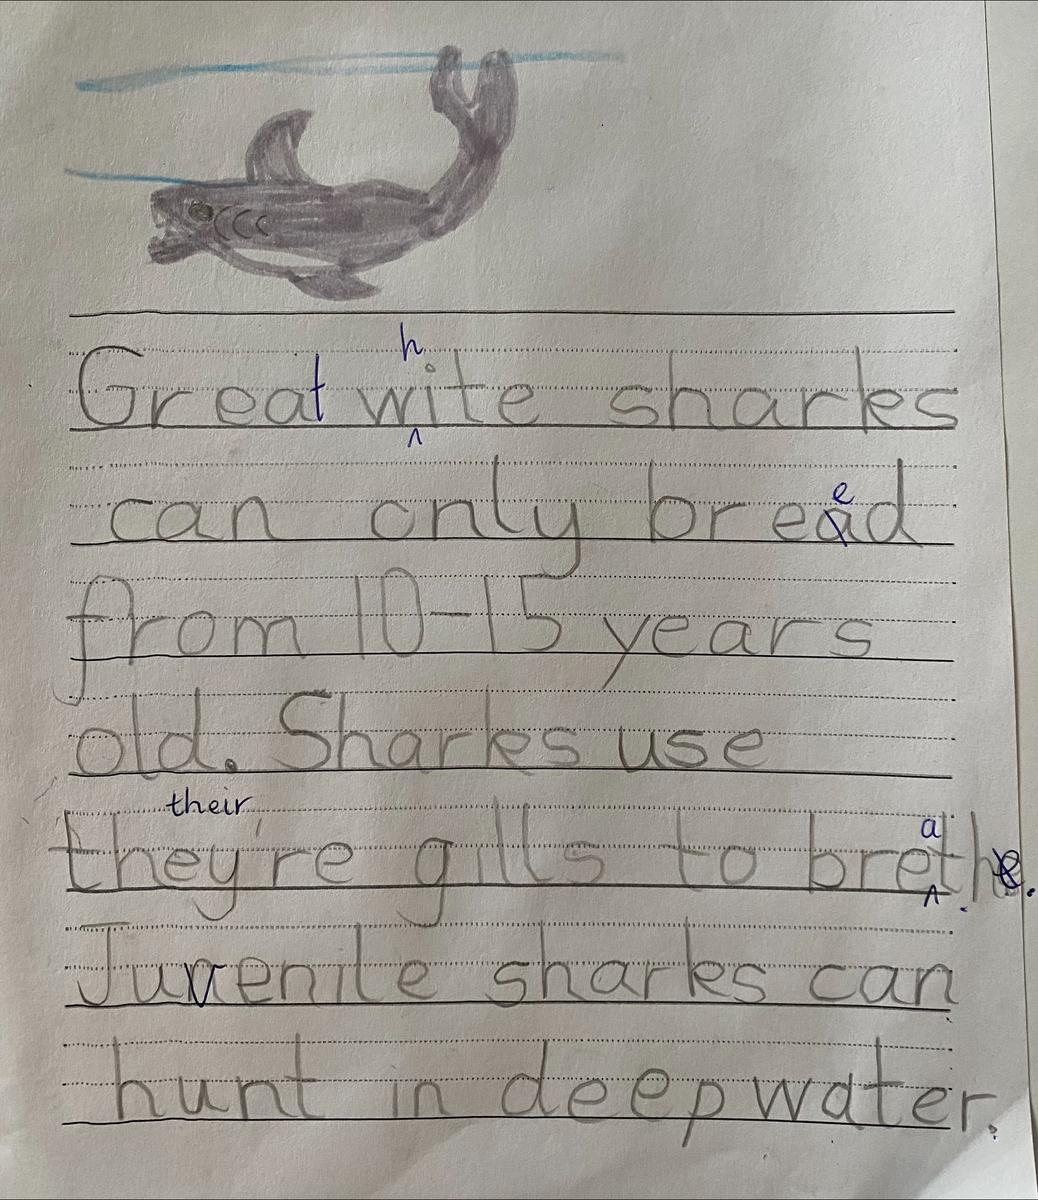 h
Great wite sharks
e
can only bread
from 10-15 years
old. Sharks use
their
a
they're gills to brethe.
Juvenile sharks can
hunt in deep water.